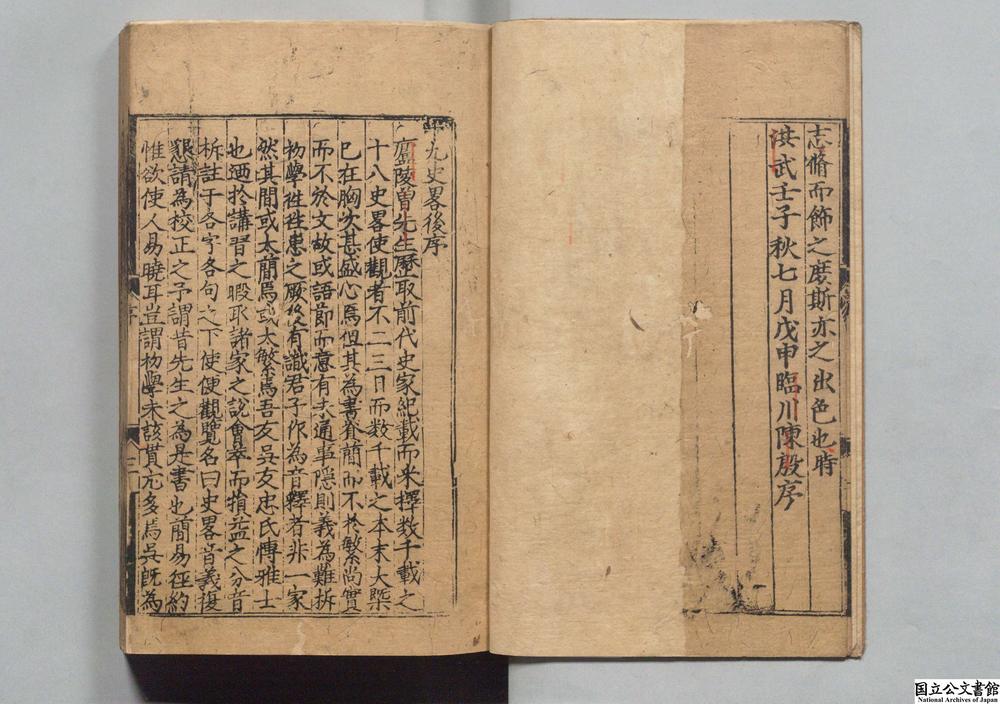 志脩而飾之庶斯亦之出色也時
洪武壬子秋七月戊申臨川陳殷序
十九史畧後序
廬陵曽先生歷取前代史家紀載而采擇数千載之
十八史畧使觀者不二三日而数千載之本末大槩
已在胸次甚盛心焉但其為書脊簡而不於繁尚實
而不於文故或語節而意有未通事隠則義為難拆
初學徃徃患之厥後有識君子作為音釋者非一家
然其間或太簡焉或太繁焉吾友吳友忠氏傳雅士
也廼於講習之暇取諸家之說會萃而損益之分音
析註于各字各句之下使便觀覽名曰史畧音義復
懇請為校正之予謂昔先生之為是書也簡易徑約
惟欲使人易曉耳豈謂初學未該貫尤多焉吳旣為
序
國立公文書館
National Archives of Japan